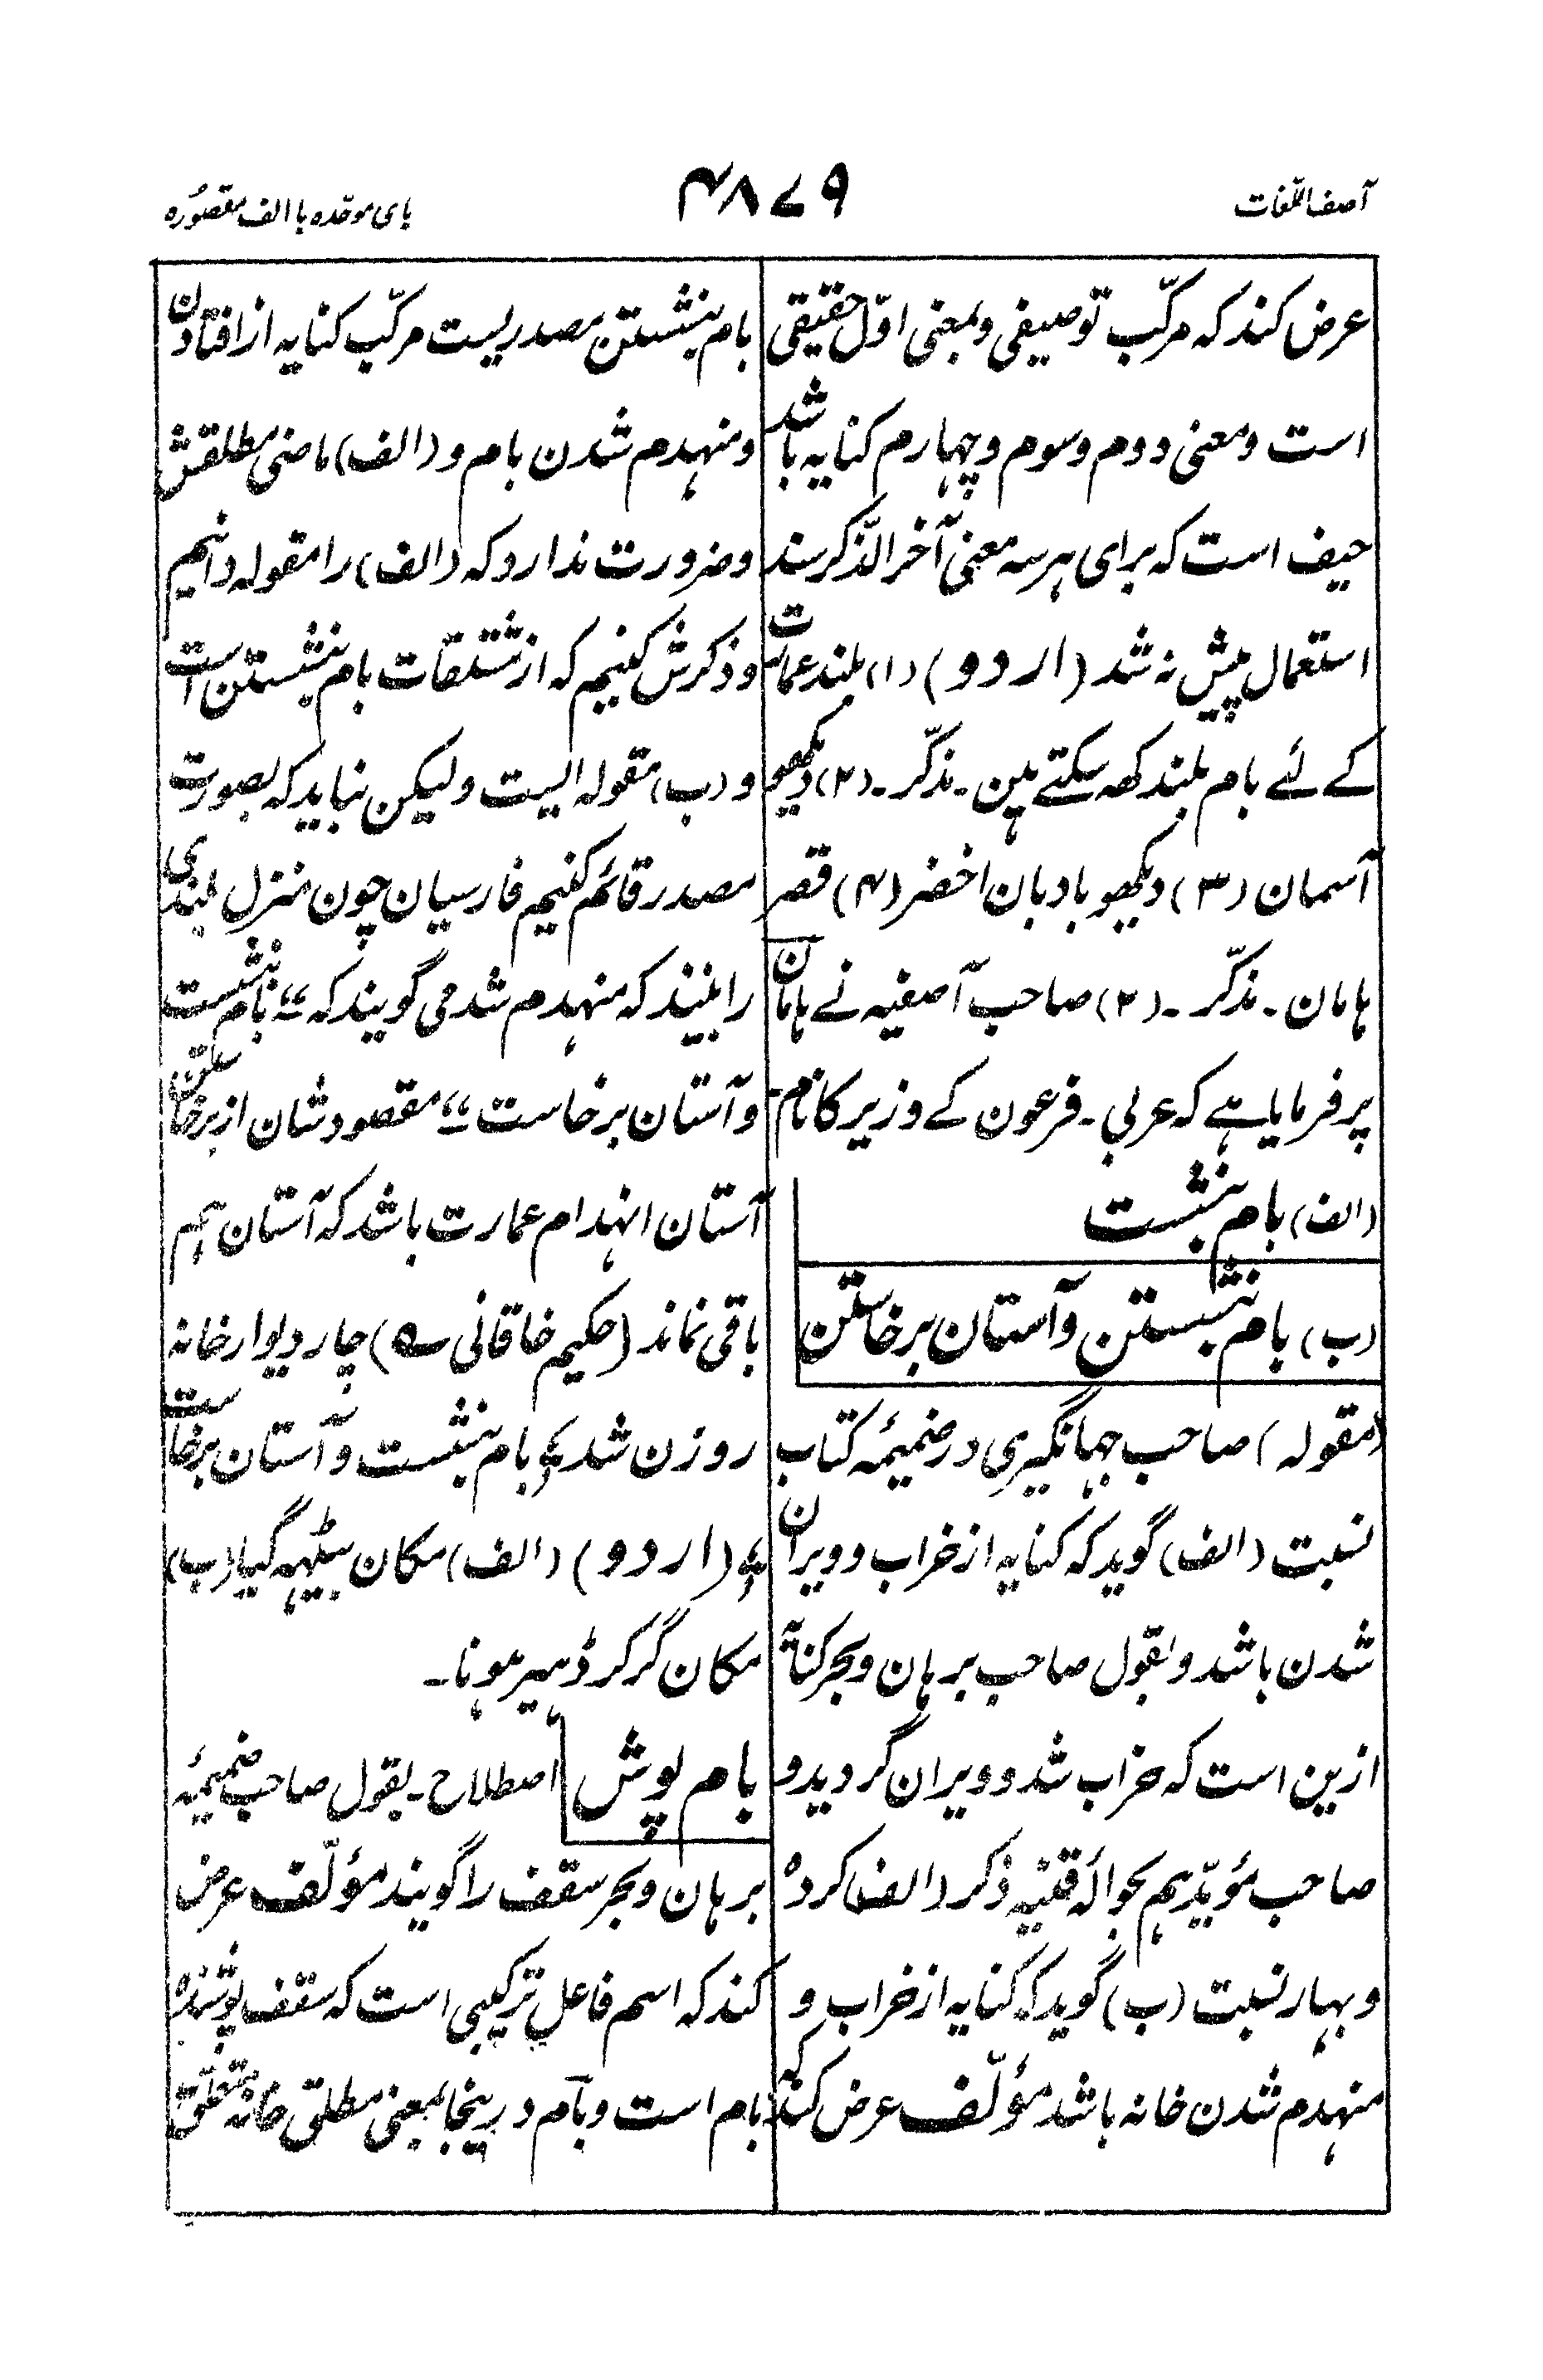 آصف اللغات
۴۸۷۹
بای موحّدہ با الف مقصورہ
عرض کند کہ مرکّب توصیفی و بمعنی اوّل حقیقی
است و معنی دوم و سوم و چہارم کنایہ باشد
حیف است کہ برای ہر سہ معنی آخر الذّکر سند
استعمال پیش نہ شد (اردو) (۱) بلند عمارت
کے لئے بام بلند کہہ سکتے ہین ۔ مذکّر ۔ (۲) دیکھو
آسمان (۳) دیکھو بادبان اخضر (۴) قصر
ہامان ۔ مذکّر ۔ (۲) صاحب آصفیہ نے ہامان
پر فرمایا ہے کہ عربی ۔ فرعون کے وزیر کا نام
(الف) بام بنشست
(ب) بام نشستن و آستان برخاستن
(مقولہ) صاحب جہانگیری در ضمیمۂ کتاب
نسبت (الف) گوید کہ کنایہ از خراب و ویران
شدن باشد و بقول صاحب برہان و بحر کنایۃً
ازین است کہ خراب شد و ویران گردید و
صاحب مؤیّد ہم بحوالۂ قنیہ ذکر (الف) کردہ
و بہار نسبت (ب) گوید کہ کنایہ از خراب و
منہدم شدن خانہ باشد مؤلّف عرض کند کہ
بام بنشستن مصدریست مرکّب کنایہ از افتادن
و منہدم شدن بام و (الف) ماضی مطلقش
و ضرورت ندارد کہ (الف) را مقولہ دانیم
و ذکرش کنیم کہ از مشتقات بام بنشستن است
و (ب) مقولہ ایست ولیکن نباید کہ بصورت
مصدر قائم کنیم فارسیان چون منزل بلندی
را بینند کہ منہدم شد می گویند کہ ”بام بنشست
و آستان برخاست“ مقصود شان از برخاستن
آستان انہدام عمارت باشد کہ آستان ہم
باقی نماند (حکیم خاقانی ؎) چار دیوار خانہ
روزن شد ؛ بام بنشست و آستان برخاست
؛ (اردو) (الف) مکان بیٹھہ گیا (ب)
مکان گر کر ڈہیر ہونا ۔
بام پوش اصطلاح ۔ بقول صاحب ضمیمۂ
برہان و بحر سقف را گویند مؤلّف عرض
کند کہ اسم فاعل ترکیبی است کہ سقف پوشندہ
بام است و بام درینجا بمعنی مطلق خانہ متعلق